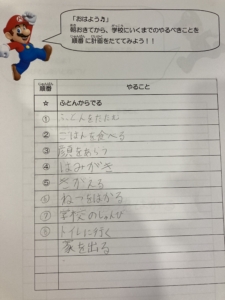 「おはよう♪」
朝おきてから、学校にいくまでのやるべきことを
順番に計画をたててみよう！！
順番 やること
☆ ふとんからでる
① ふとんをたたむ
② ごはんを食べる
③ 顔をあらう
④ はみがき
⑤ きがえる
⑥ ねつをはかる
⑦ 学校のじゅんび
⑧ トイレに行く
家を出る